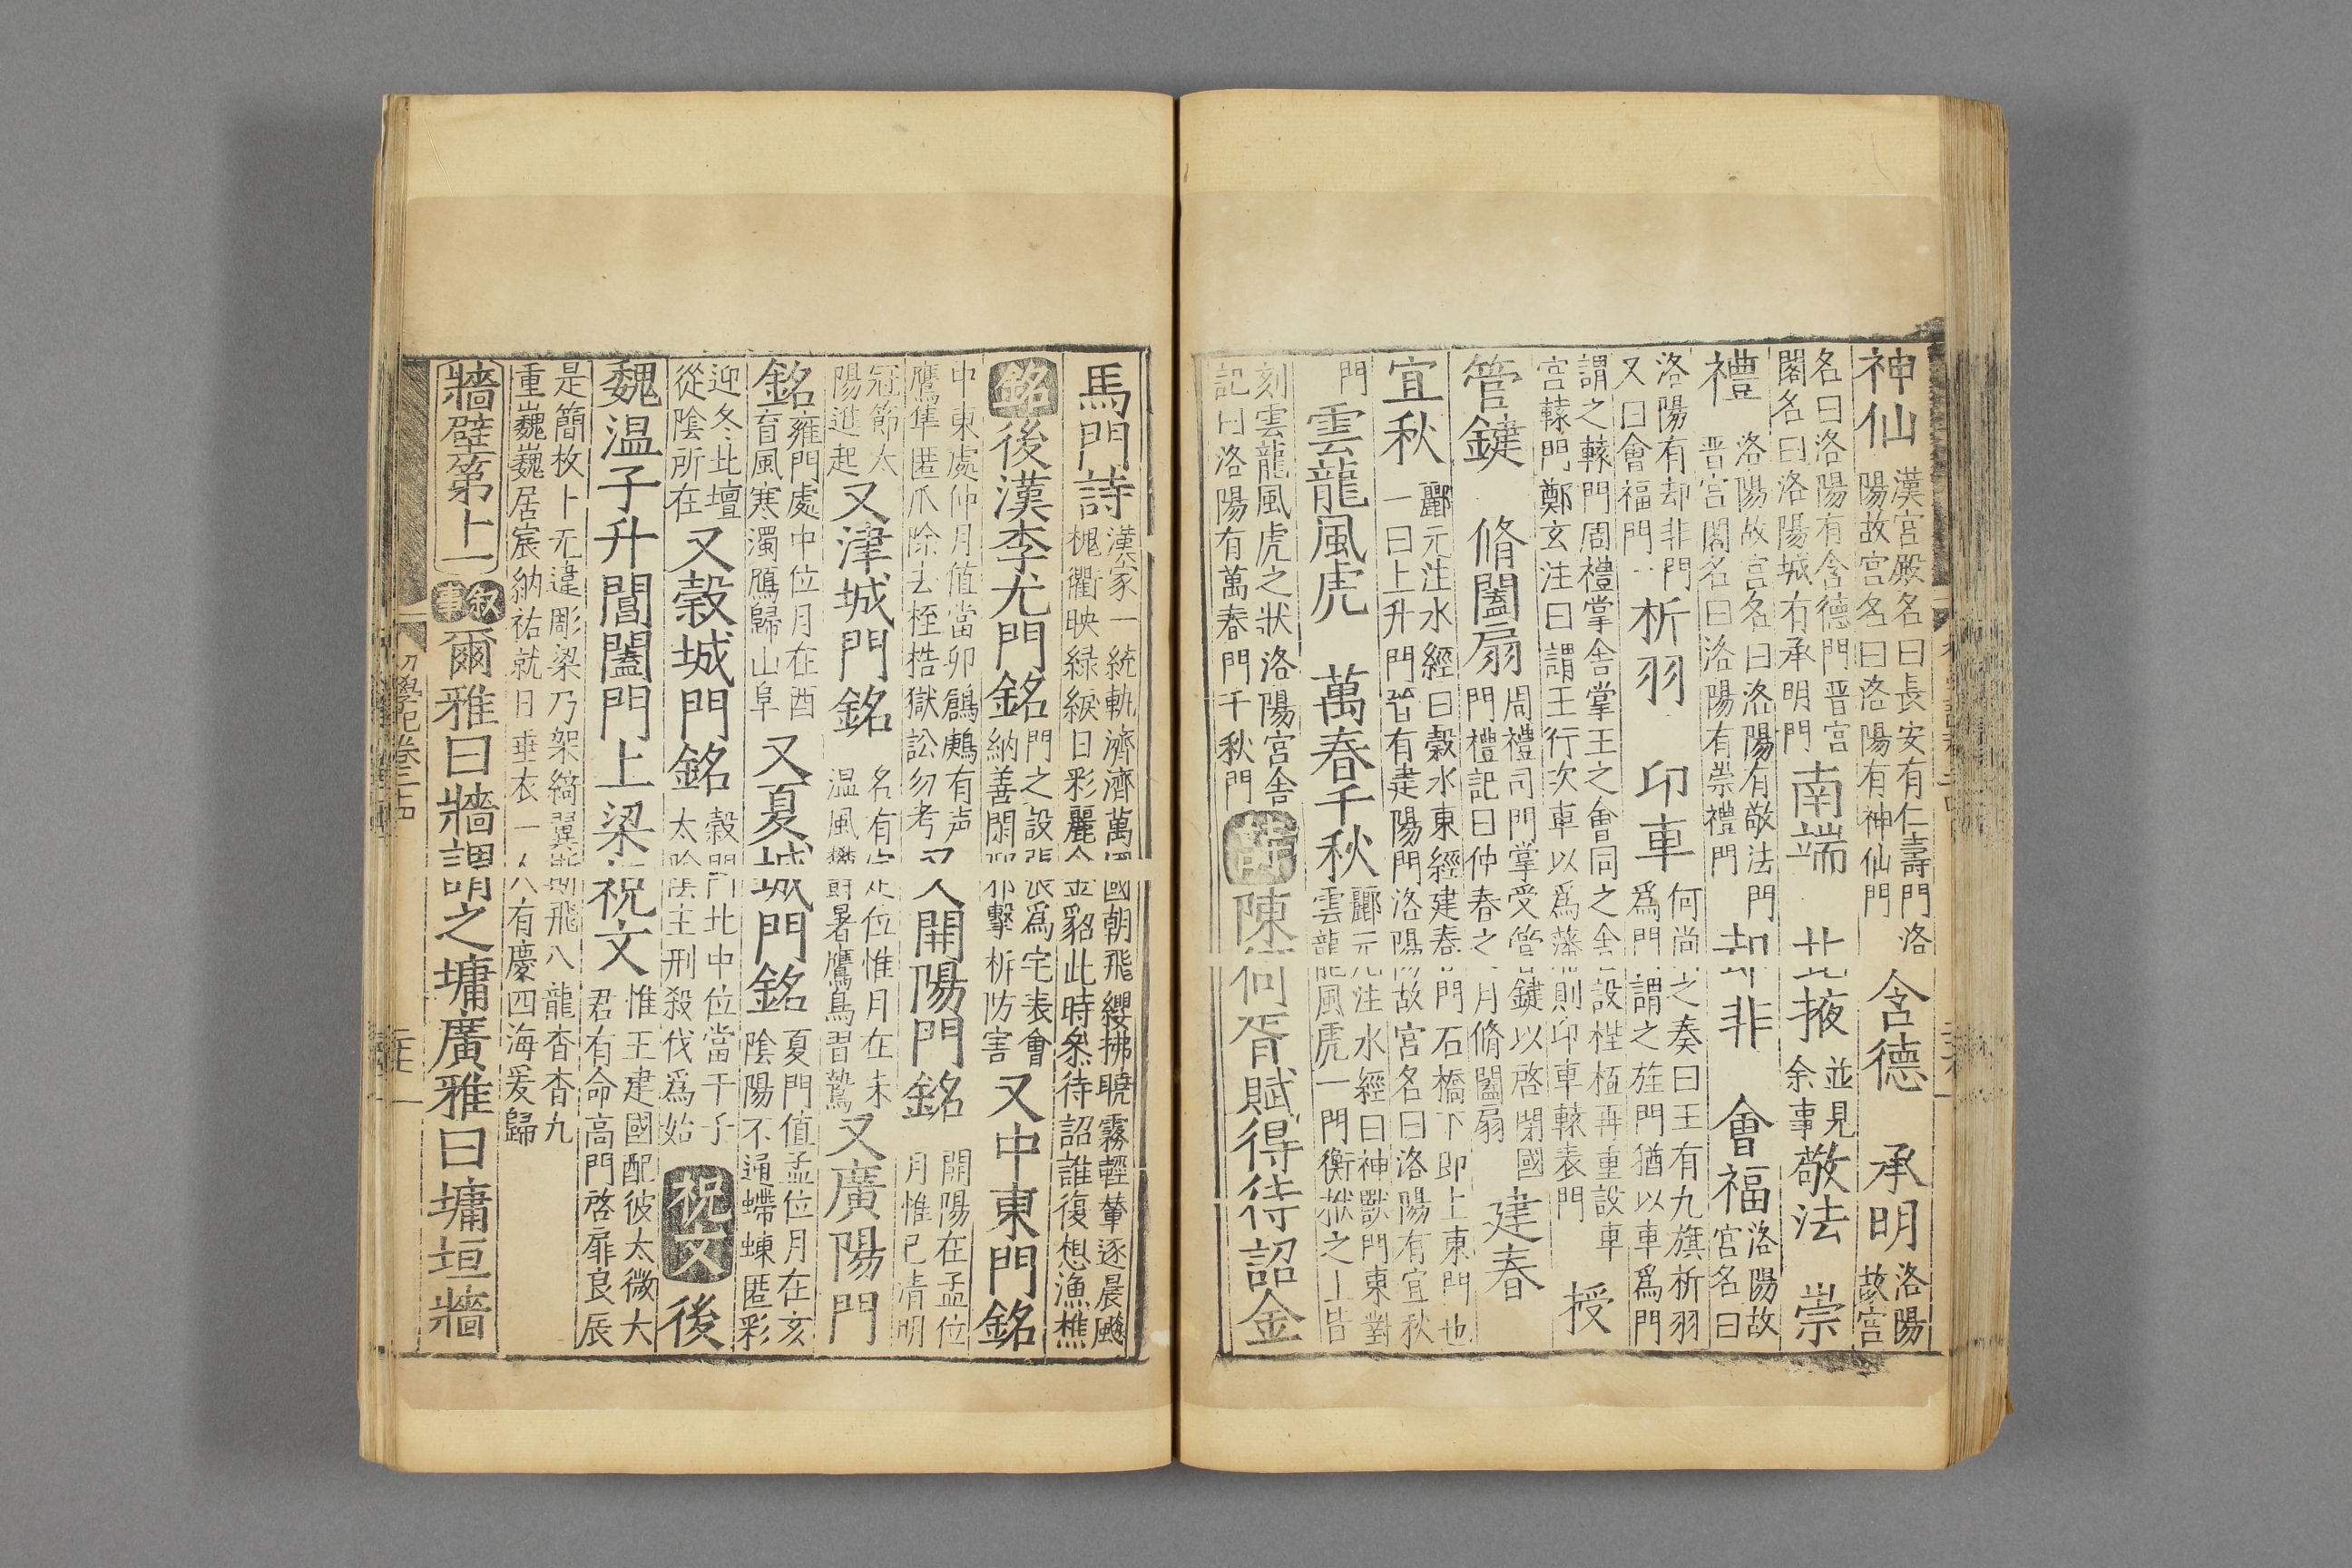 神仙 漢宮殿名曰長安有仁壽門洛陽故宮名曰洛陽有神仙門 含德 承明 洛陽故宮
名曰洛陽有含德門晋宮閣名曰洛陽城有承明門 南端 北掖 並見余事 敬法 崇
禮 洛陽故宮名曰洛陽有敬法門晋宮閣名曰洛陽有崇禮門 却非 會福 洛陽故宮名曰
洛陽有却非門又曰會福門 析羽 印車 何尚之奏曰王有九旗析羽爲門謂之旌門猶以車爲門
謂之轅門周禮掌舍掌王之會同之舍設梐枑再重設車宮轅門鄭玄注曰謂王行次車以爲藩則印車轅表門 授
管鍵 脩闔扇 周禮司門掌受管鍵以啓閉國門禮記曰仲春之月脩闔扇 建春
宜秋 酈元注水經曰榖水東經建春門石橋下即上東門也一曰上升門晉有建陽門洛陽故宮名曰洛陽有宜秋
門 雲龍風虎 萬春千秋 酈元注水經曰神獸門東對雲龍風虎一門衡栿之上皆
刻雲龍風虎之狀洛陽宮舍記曰洛陽有萬春門千秋門 詩 陳何胥賦得待詔金
馬門詩 漢家一統軌濟濟萬國朝飛纓拂曉霧輕輦逐晨飈槐衢映緑綬日彩麗金貂此時參待詔誰復想漁樵
銘 後漢李尤門銘 門之設張爲宅表會納善閑邪擊柝防害 又中東門銘
中東處仲月值當卯鶬鶊有声鷹隼匿爪除去桎梏獄訟勿考 又開陽門銘 開陽在孟位月惟巳清明
冠節太陽進起 又津城門銘 名有定位惟月在未温風欝暑鷹鳥習鷙 又廣陽門
銘 雍門處中位月在酉盲風寒濁鴈歸山阜 又夏城門銘 夏門值孟位月在亥陰陽不通蝃蝀匿彩
迎冬北壇從陰所在 又榖城門銘 榖門北中位當于子太陰主刑殺伐爲始 祝文 後
魏温子升閶闔門上梁祝文 惟王建國配彼太微大君有命高門啓扉良辰
是簡枚卜无違彫梁乃架綺翼斯飛八龍杳杳九重巍巍居宸納祐就日垂衣一人有慶四海爰歸
牆壁第上一 叙事 爾雅曰牆謂之墉廣雅曰墉垣牆
初學記卷二十四